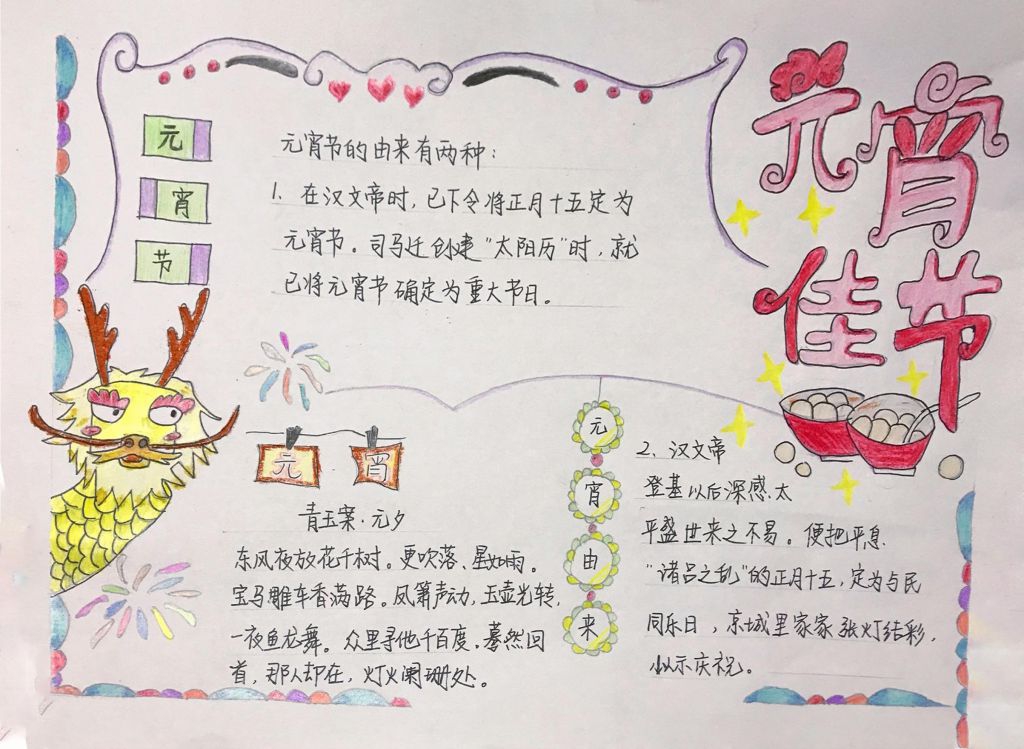 元宵佳节
元
宵
节
元宵节的由来有两种：
1. 在汉文帝时，已下令将正月十五定为
元宵节。司马迁创建"太阳历"时，就
已将元宵节确定为重大节日。
元 宵
青玉案·元夕
东风夜放花千树。更吹落、星如雨。
宝马雕车香满路。凤箫声动，玉壶光转，
一夜鱼龙舞。众里寻他千百度。蓦然回
首，那人却在，灯火阑珊处。
元
宵
由
来
2、汉文帝
登基以后深感，太
平盛世来之不易。便把平息
"诸吕之乱"的正月十五，定为与民
同乐日，京城里家家张灯结彩，
以示庆祝。